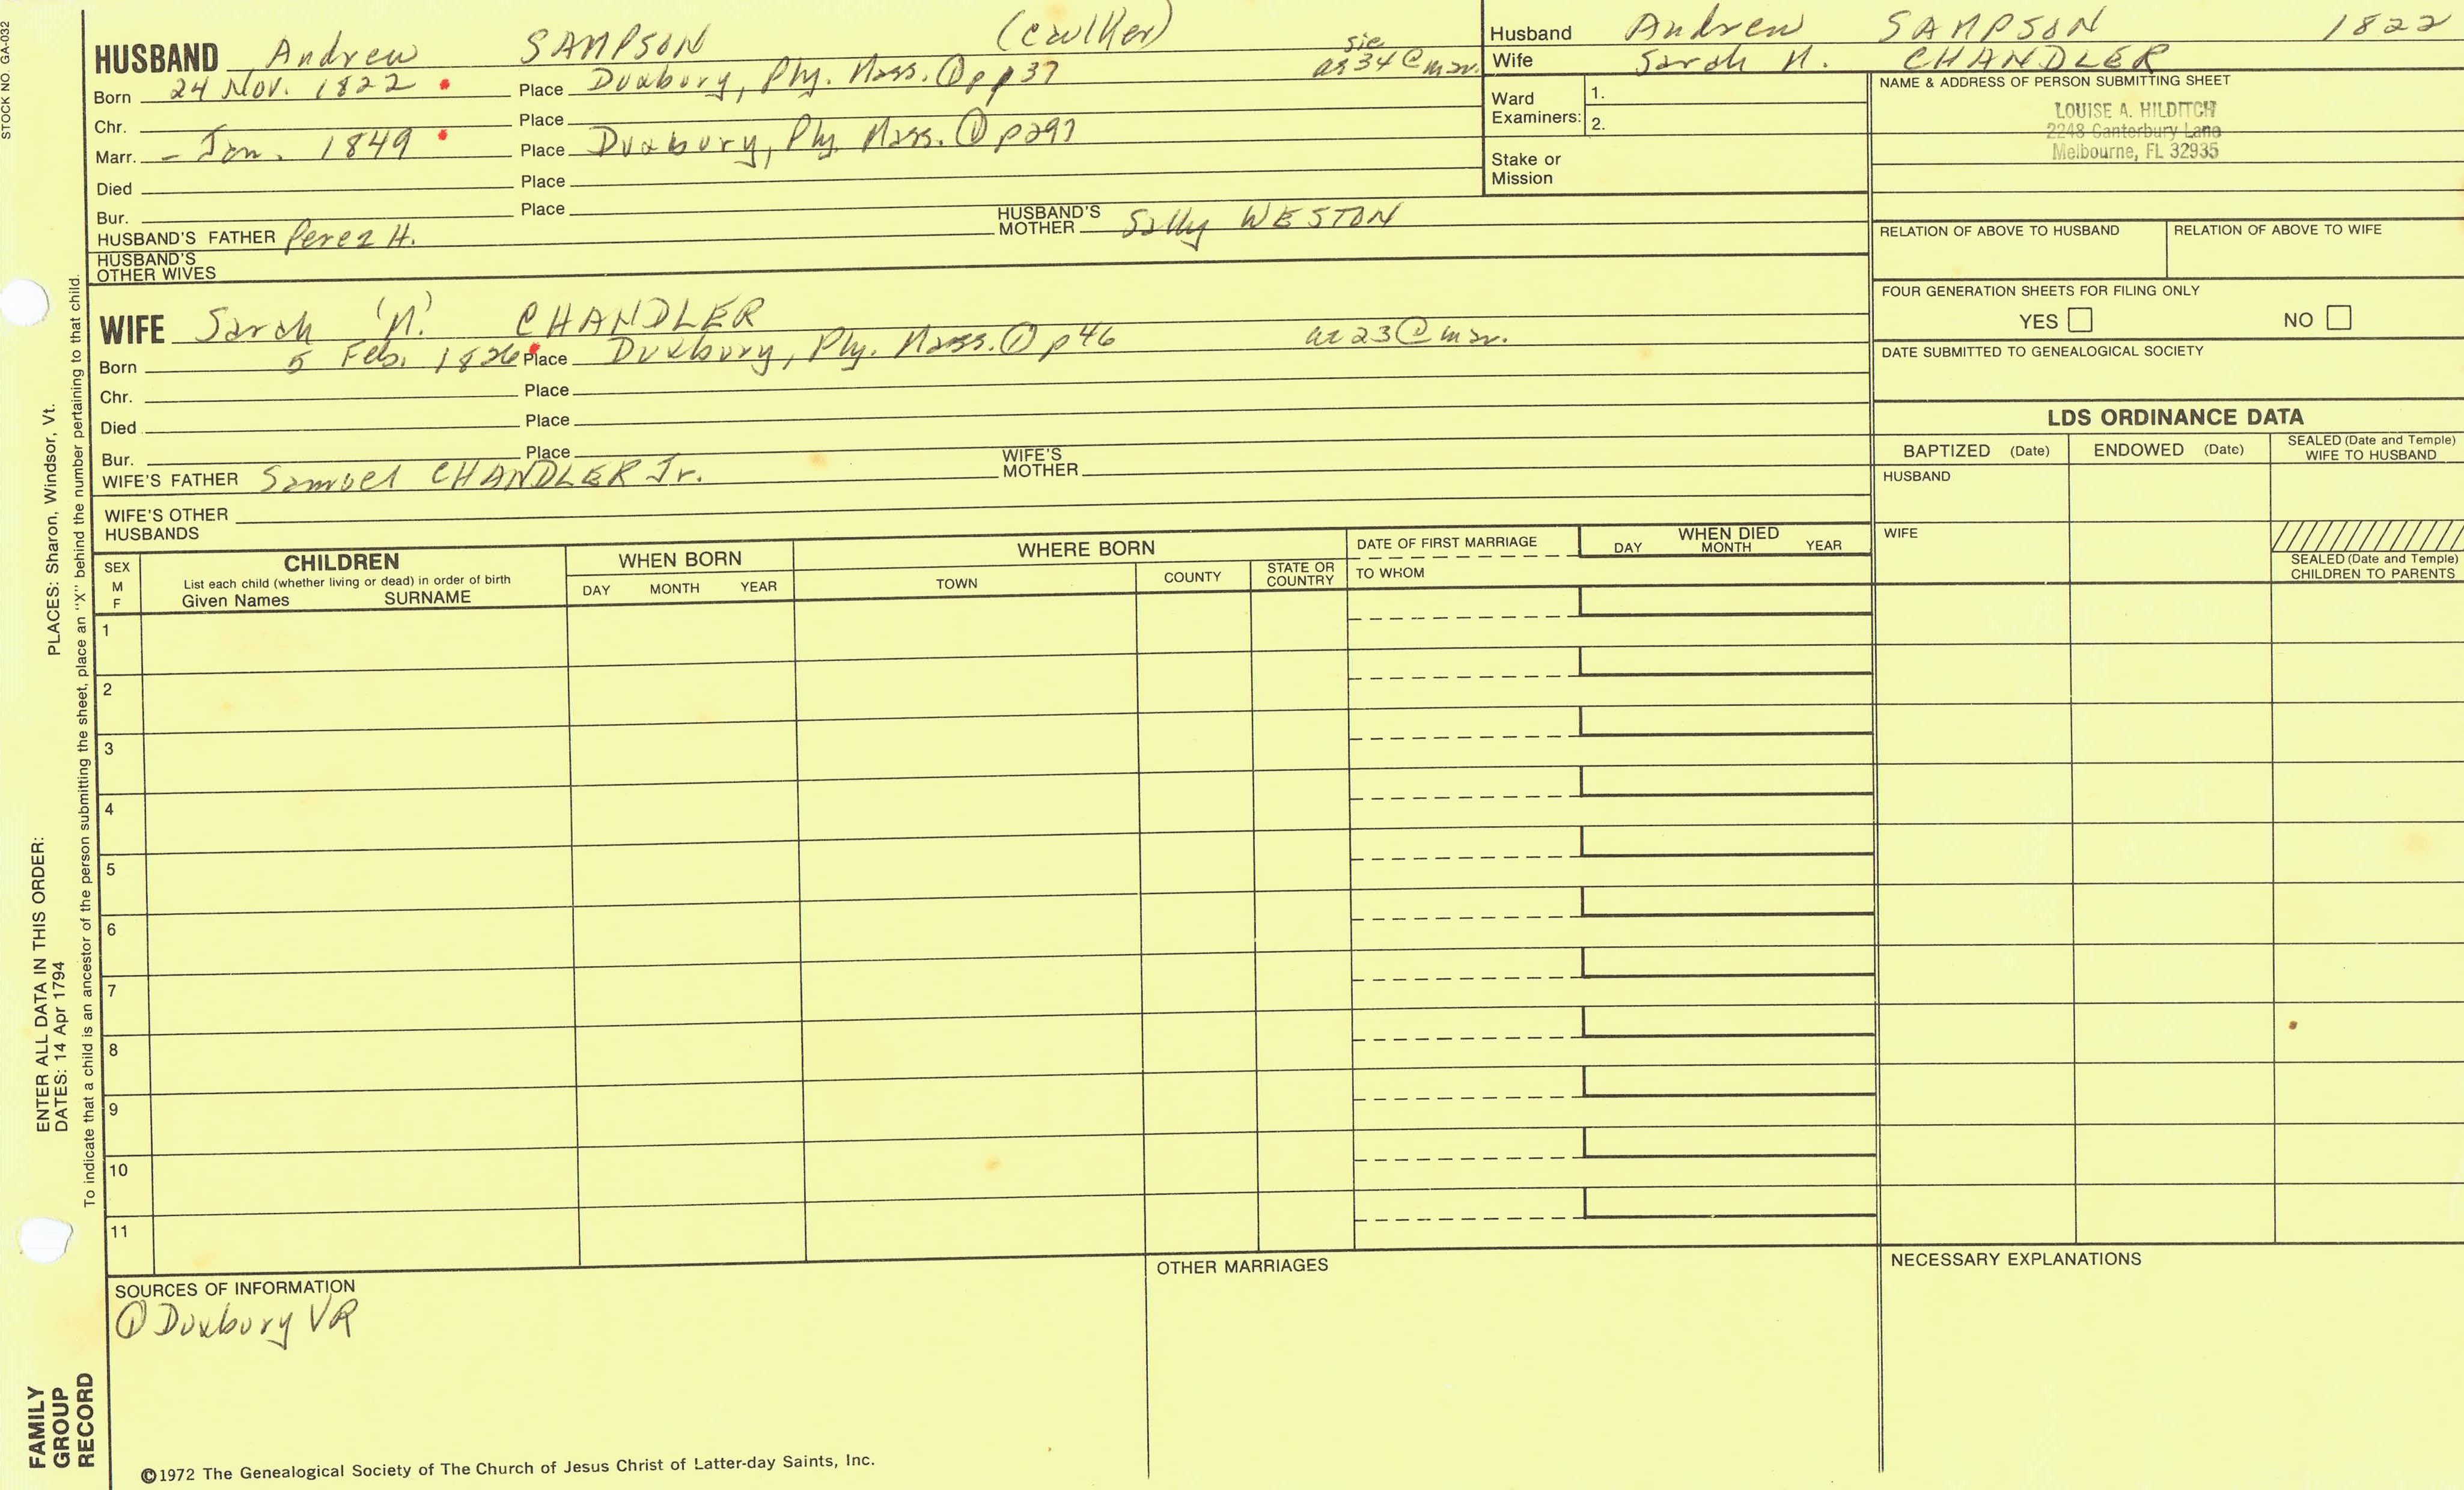 STOCK NO. GA-032
HUSBAND Andrew SAMPSON (caulker)
Born 24 Nov. 1822 Place Duxbury, Ply. Mass. ① p 37 sic ae 34 @ mar.
Chr. Place
Marr. - Jan. 1849 Place Duxbury, Ply. Mass. ① p297
Died Place
Bur. Place
HUSBAND'S FATHER Perez H. HUSBAND'S MOTHER Sally WESTON
HUSBAND'S OTHER WIVES
WIFE Sarah 'N.' CHANDLER
Born 5 Feb. 1826 Place Duxbury, Ply. Mass. ① p46 ae 23 @ mar.
Chr. Place
Died Place
Bur. Place
WIFE'S FATHER Samuel CHANDLER Jr. WIFE'S MOTHER
WIFE'S OTHER HUSBANDS
Husband Andrew SAMPSON 1822
Wife Sarah N. CHANDLER
Ward Examiners: 1.
2.
Stake or Mission
NAME & ADDRESS OF PERSON SUBMITTING SHEET
LOUISE A. HILDITCH
2248 Canterbury Lane
Melbourne, FL 32935
RELATION OF ABOVE TO HUSBAND RELATION OF ABOVE TO WIFE
FOUR GENERATION SHEETS FOR FILING ONLY
YES NO
DATE SUBMITTED TO GENEALOGICAL SOCIETY
LDS ORDINANCE DATA
BAPTIZED (Date) ENDOWED (Date) SEALED (Date and Temple) WIFE TO HUSBAND
HUSBAND
WIFE
SEALED (Date and Temple) CHILDREN TO PARENTS
SEX M F
CHILDREN
List each child (whether living or dead) in order of birth
Given Names SURNAME
WHEN BORN
DAY MONTH YEAR
WHERE BORN
TOWN COUNTY STATE OR COUNTRY
DATE OF FIRST MARRIAGE
TO WHOM
WHEN DIED
DAY MONTH YEAR
1
2
3
4
5
6
7
8
9
10
11
SOURCES OF INFORMATION
① Duxbury VR
OTHER MARRIAGES
NECESSARY EXPLANATIONS
©1972 The Genealogical Society of The Church of Jesus Christ of Latter-day Saints, Inc.
FAMILY GROUP RECORD
ENTER ALL DATA IN THIS ORDER:
DATES: 14 Apr 1794
PLACES: Sharon, Windsor, Vt.
To indicate that a child is an ancestor of the person submitting the sheet, place an "X" behind the number pertaining to that child.